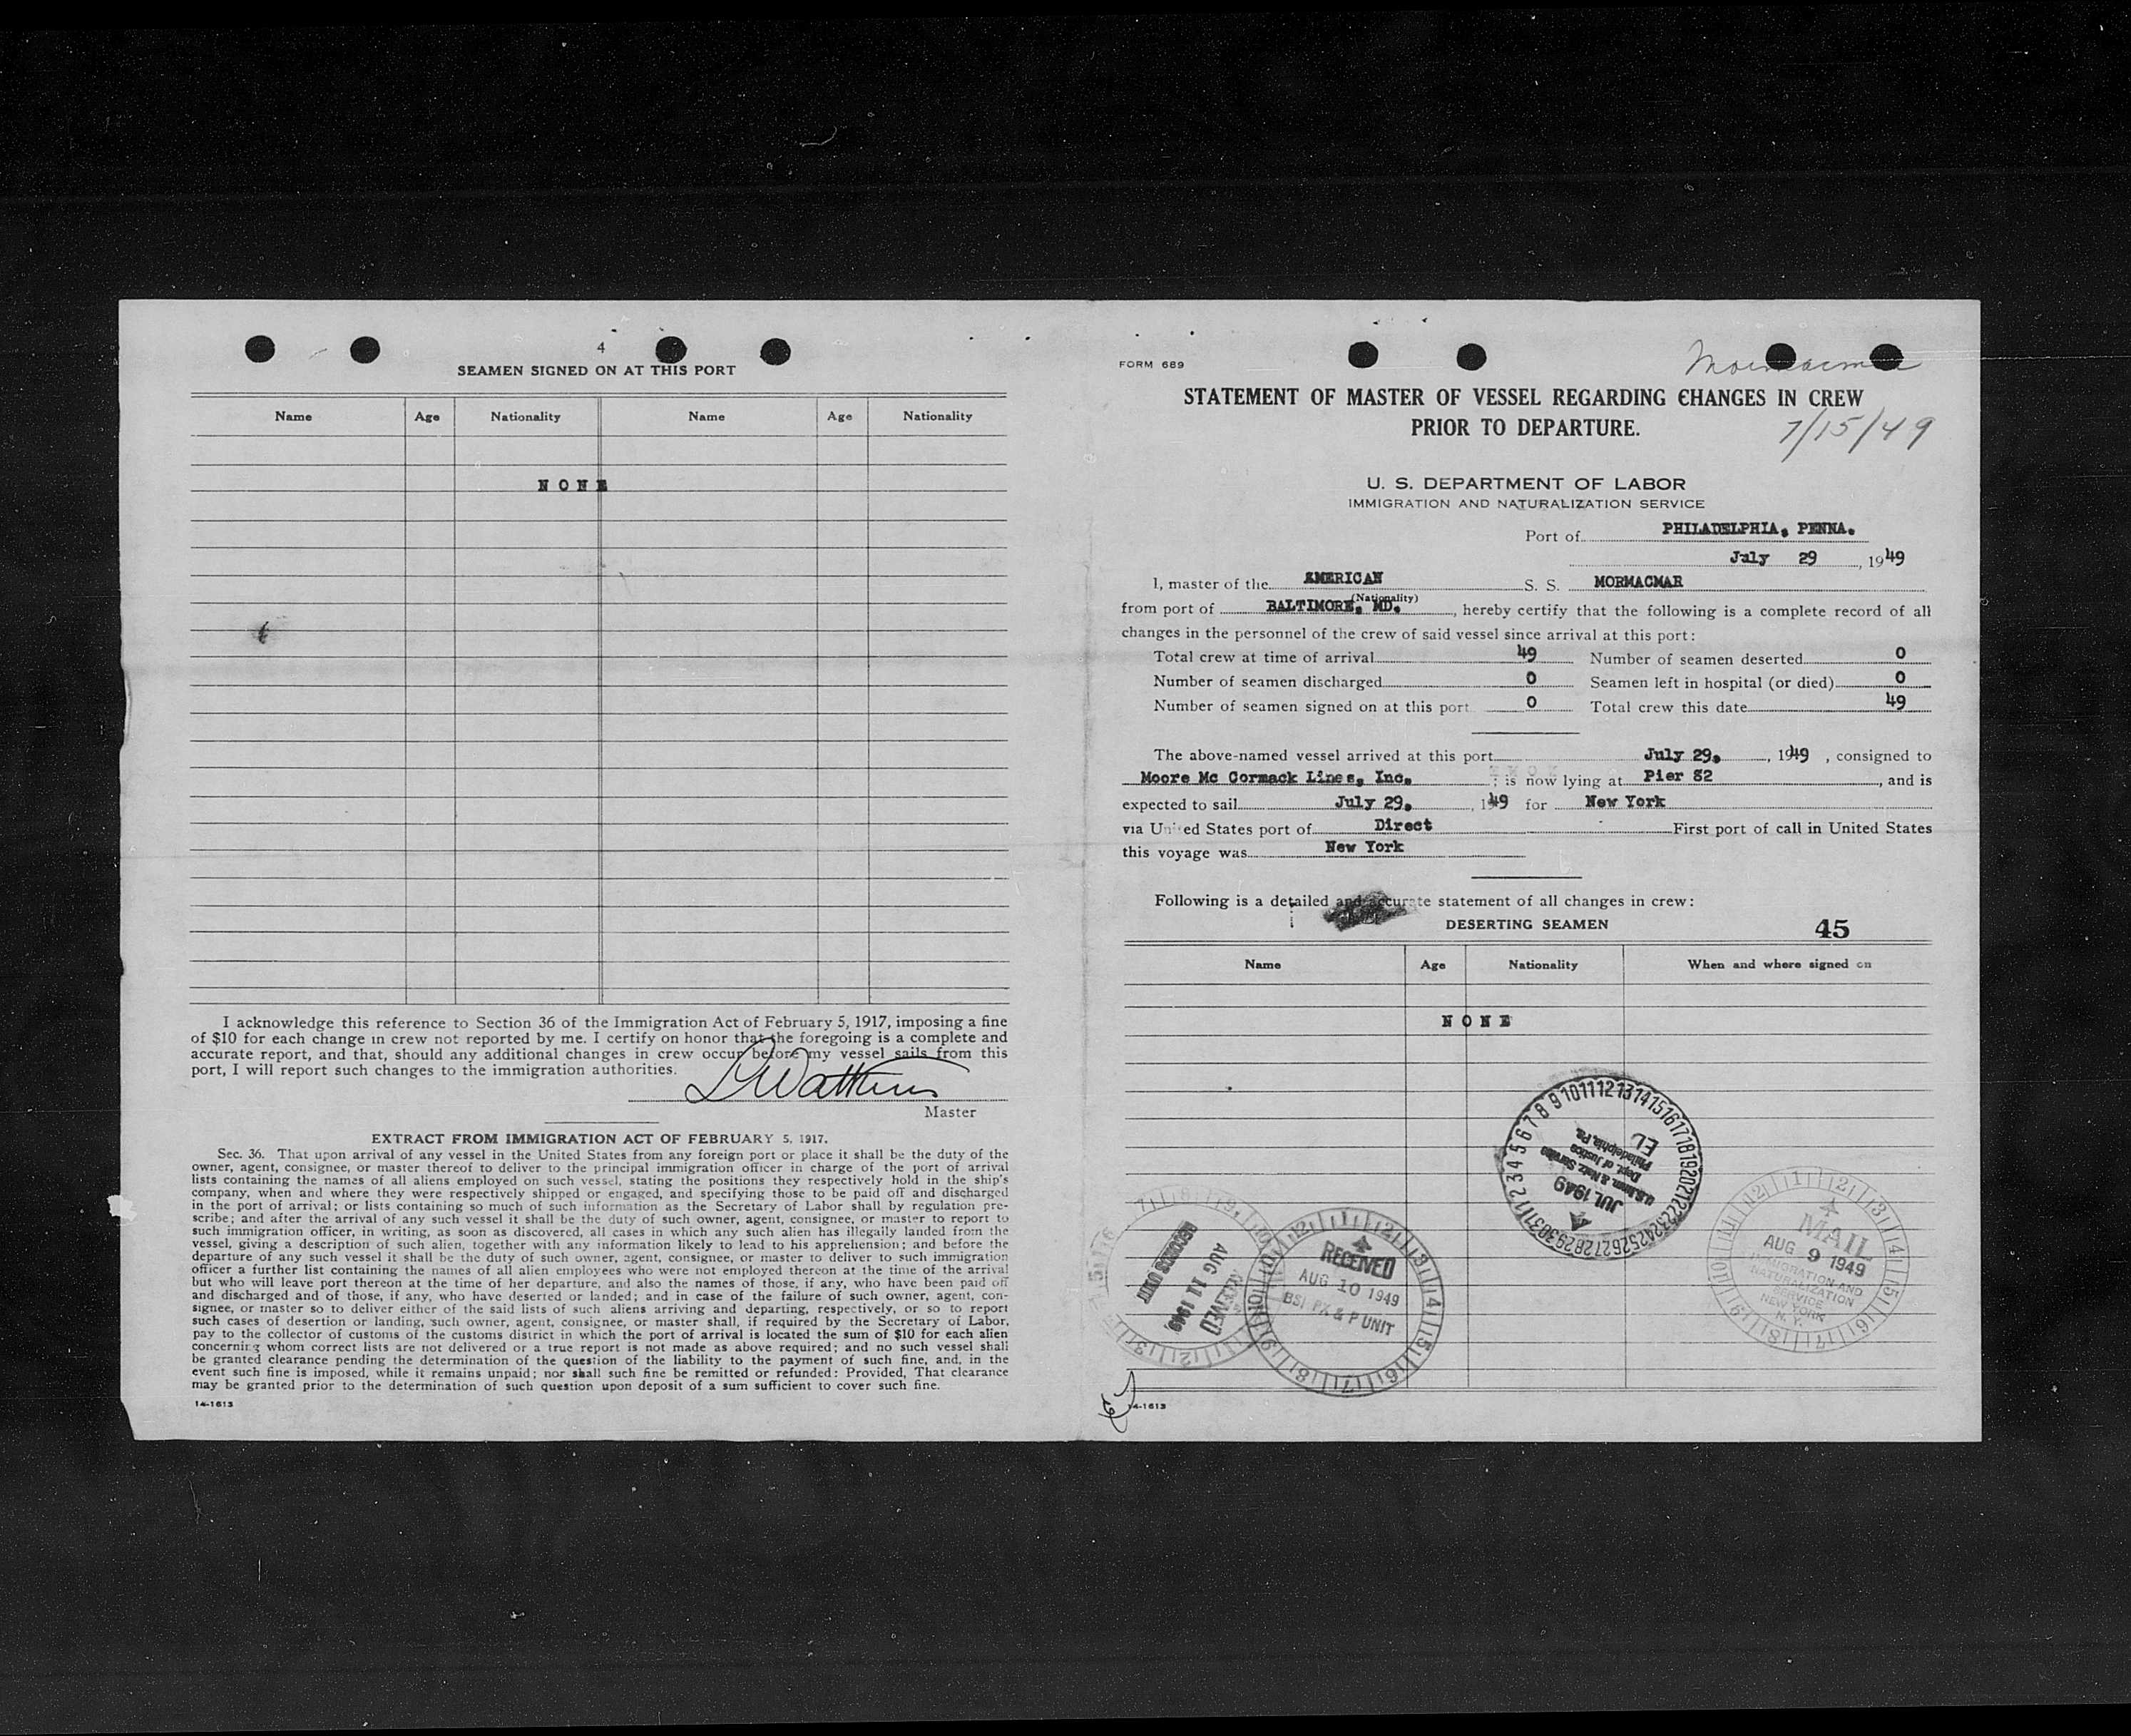 4
SEAMEN SIGNED ON AT THIS PORT
Name Age Nationality Name Age Nationality
NONE
I acknowledge this reference to Section 36 of the Immigration Act of February 5, 1917, imposing a fine
of $10 for each change in crew not reported by me. I certify on honor that the foregoing is a complete and
accurate report, and that, should any additional changes in crew occur before my vessel sails from this
port, I will report such changes to the immigration authorities.
Watkins
Master
EXTRACT FROM IMMIGRATION ACT OF FEBRUARY 5, 1917.
Sec. 36. That upon arrival of any vessel in the United States from any foreign port or place it shall be the duty of the
owner, agent, consignee, or master thereof to deliver to the principal immigration officer in charge of the port of arrival
lists containing the names of all aliens employed on such vessel, stating the positions they respectively hold in the ship's
company, when and where they were respectively shipped or engaged, and specifying those to be paid off and discharged
in the port of arrival; or lists containing so much of such information as the Secretary of Labor shall by regulation pre-
scribe; and after the arrival of any such vessel it shall be the duty of such owner, agent, consignee, or master to report to
such immigration officer, in writing, as soon as discovered, all cases in which any such alien has illegally landed from the
vessel, giving a description of such alien, together with any information likely to lead to his apprehension; and before the
departure of any such vessel it shall be the duty of such owner, agent, consignee, or master to deliver to such immigration
officer a further list containing the names of all alien employees who were not employed thereon at the time of the arrival
but who will leave port thereon at the time of her departure, and also the names of those, if any, who have been paid off
and discharged and of those, if any, who have deserted or landed; and in case of the failure of such owner, agent, con-
signee, or master so to deliver either of the said lists of such aliens arriving and departing, respectively, or so to report
such cases of desertion or landing, such owner, agent, consignee, or master shall, if required by the Secretary of Labor,
pay to the collector of customs of the customs district in which the port of arrival is located the sum of $10 for each alien
concerning whom correct lists are not delivered or a true report is not made as above required; and no such vessel shall
be granted clearance pending the determination of the question of the liability to the payment of such fine, and, in the
event such fine is imposed, while it remains unpaid; nor shall such fine be remitted or refunded: Provided, That clearance
may be granted prior to the determination of such question upon deposit of a sum sufficient to cover such fine.
14-1613
FORM 689
STATEMENT OF MASTER OF VESSEL REGARDING CHANGES IN CREW
PRIOR TO DEPARTURE.
7/15/49
U. S. DEPARTMENT OF LABOR
IMMIGRATION AND NATURALIZATION SERVICE
Port of PHILADELPHIA, PENNA.
July 29, 1949
I, master of the AMERICAN S. S. MORMACMAR
(Nationality)
from port of BALTIMORE, MD., hereby certify that the following is a complete record of all
changes in the personnel of the crew of said vessel since arrival at this port:
Total crew at time of arrival 49 Number of seamen deserted 0
Number of seamen discharged 0 Seamen left in hospital (or died) 0
Number of seamen signed on at this port 0 Total crew this date 49
The above-named vessel arrived at this port July 29, 1949, consigned to
Moore Mc Cormack Lines, Inc. ; is now lying at Pier 82, and is
expected to sail July 29, 149 for New York
via United States port of Direct First port of call in United States
this voyage was New York
Following is a detailed and accurate statement of all changes in crew:
DESERTING SEAMEN 45
Name Age Nationality When and where signed on
NONE
JUL 1949
U.S. Imm. & Natz. Service
Dept. of Justice
Philadelphia, Pa.
MAIL
AUG 9 1949
IMMIGRATION AND
NATURALIZATION
SERVICE
NEW YORK
N. Y.
RECEIVED
AUG 10 1949
BSI PX & P UNIT
RECEIVED
AUG 11 1949
RECORDS UNIT
14-1613